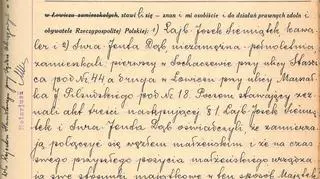 w Łowiczu zamieszkałych, stawili się – znani mi osobiście i do działań prawnych zdolni
obywatele Rzeczypospolitej Polskiej: 1) Lajb-Josek Sieniążek kawa-
ler i 2) Sura-Jenta Dąb, niezamężna-pełnoletnia,
zamieszkali: pierwszy w Sochaczewie przy ulicy Staszi-
ca pod № 44 a druga w Łowiczu przy ulicy Marszał-
ka J. Piłsudskiego pod № 18. Poczem stawający zez-
nali akt treści następującej: § 1. Lajb-Josek Sieniążek
i Sura-Jenta Dąb oświadczyli, że zamierzają
połączyć się węzłem małżeńskim i że na czas
swego przyszłego pożycia małżeńskiego urządza-
ją swe stosunki majątkowe w ten sposób
Notariusz